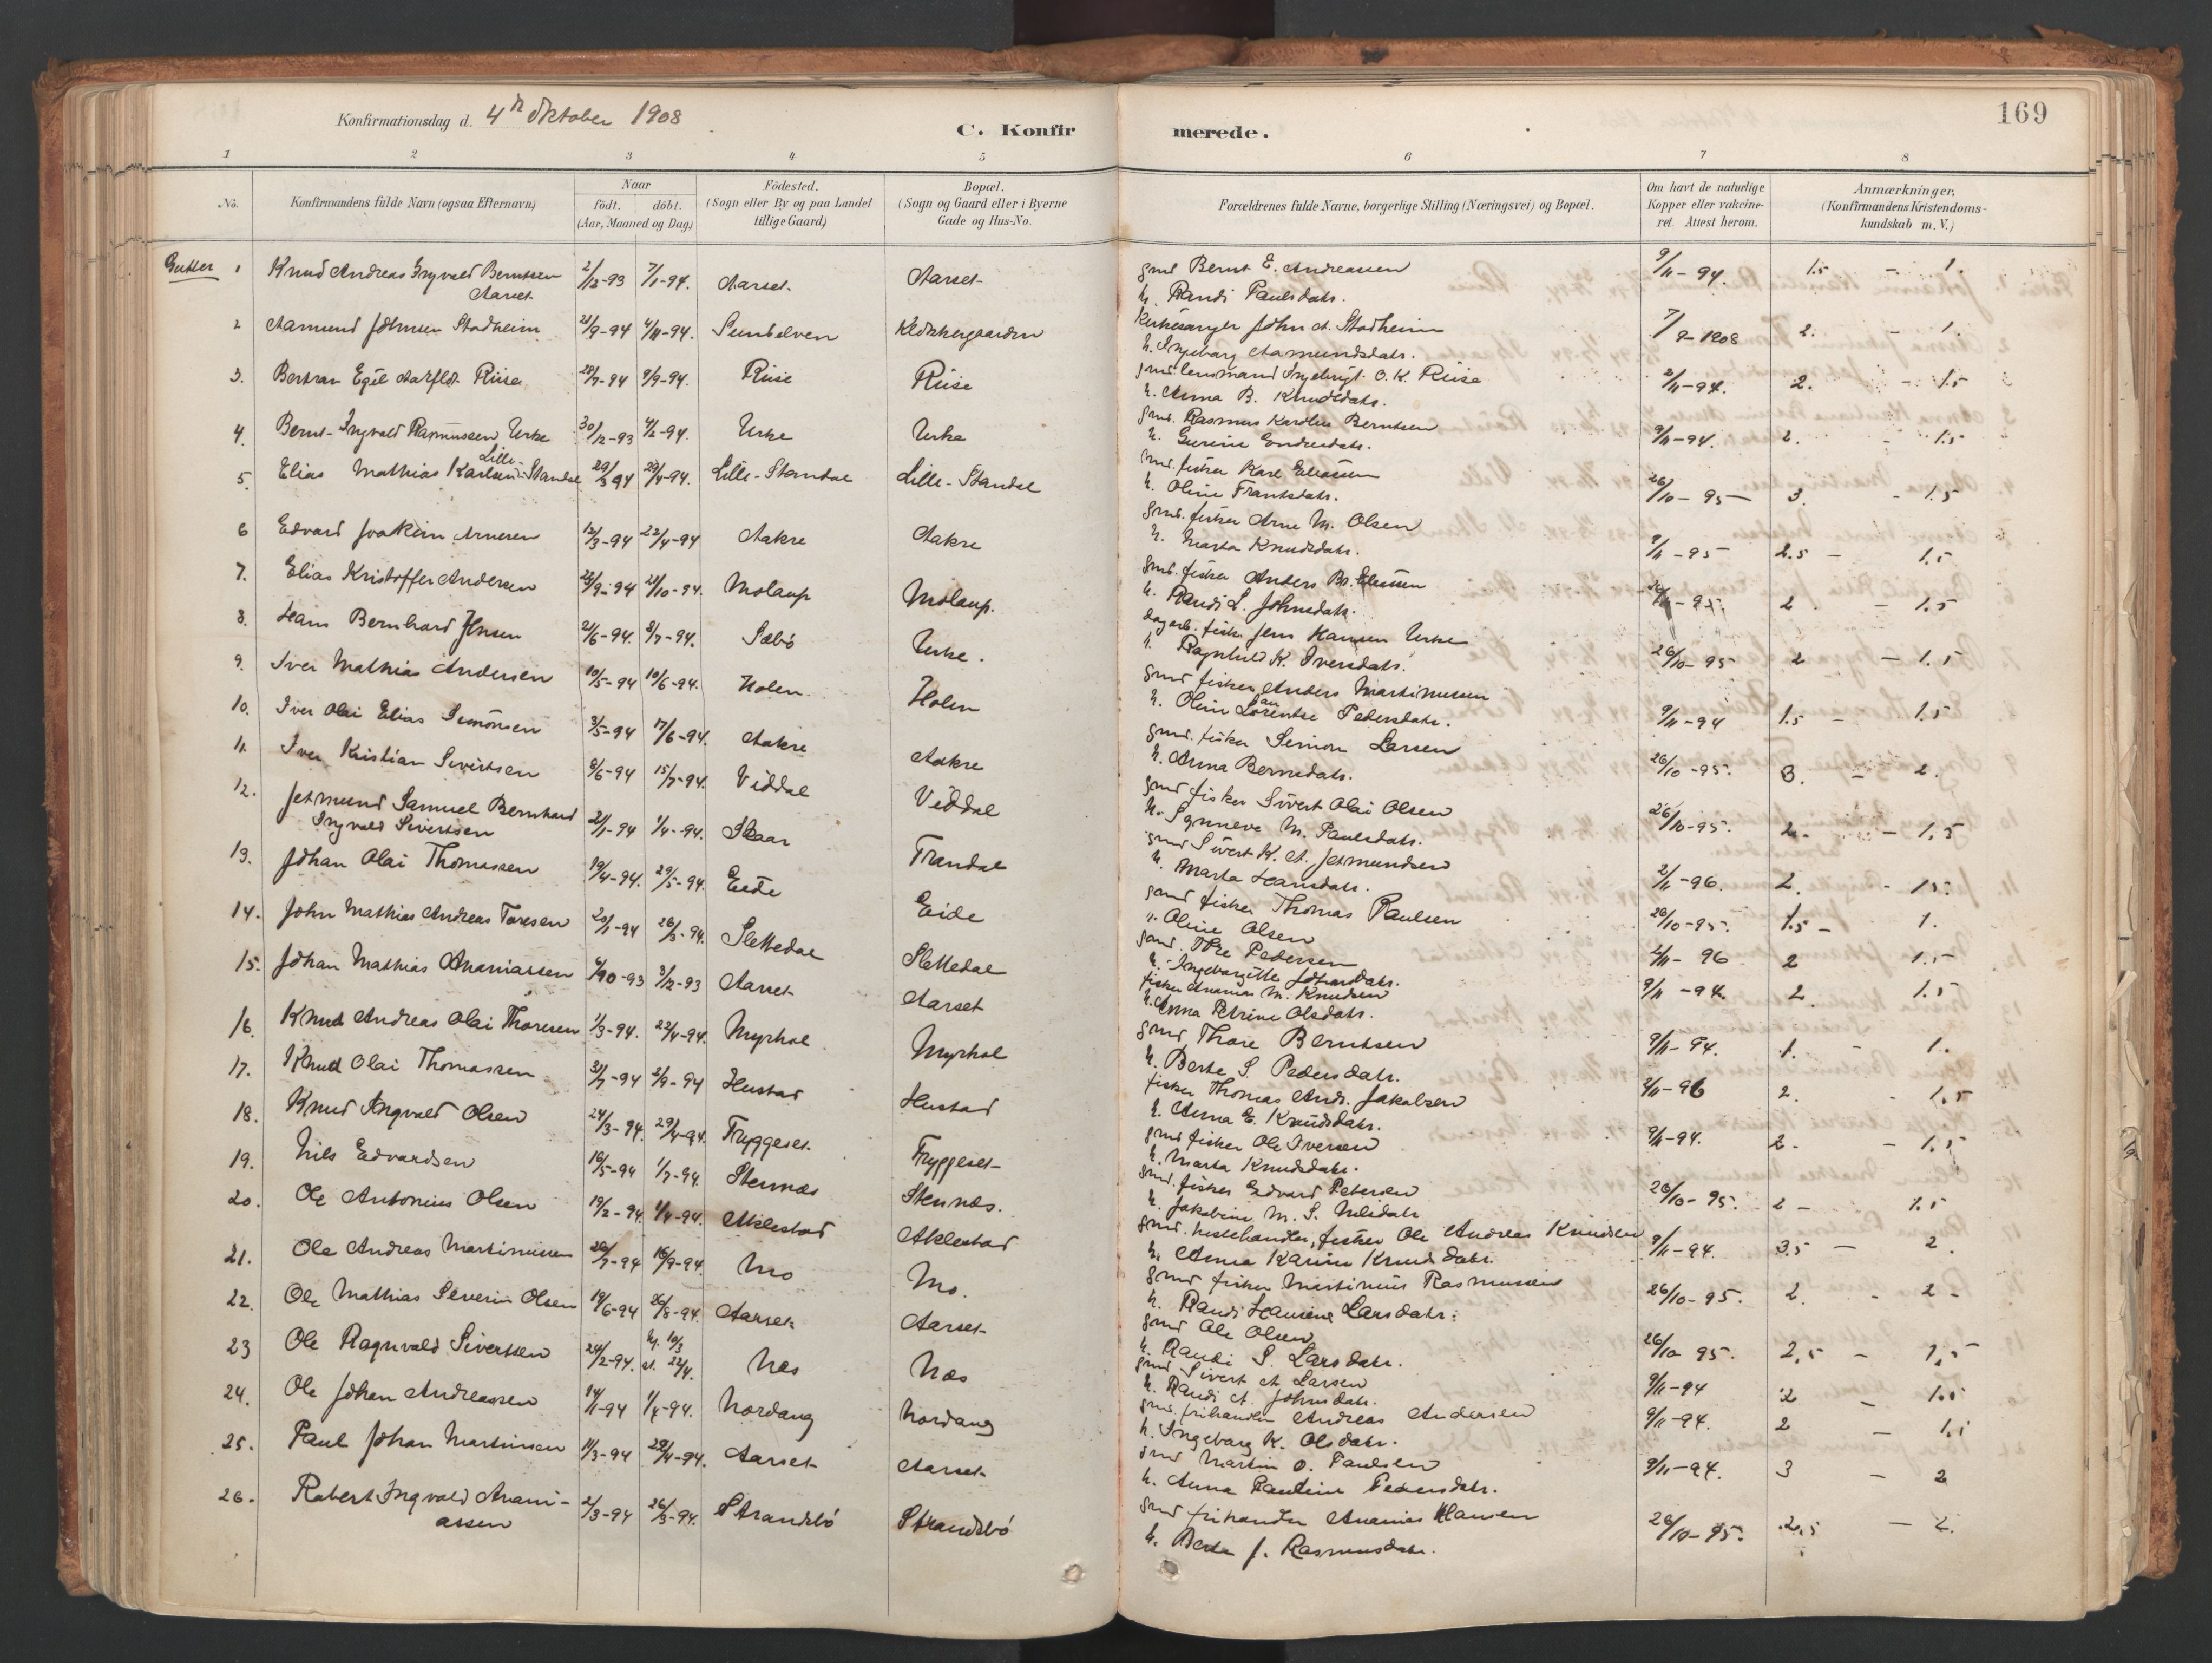 169
Konfirmationsdag d. 4de Oktober 1908
C. Konfirmerede.
1 2 3 4 5 6 7 8
No. Konfirmandens fulde Navn (ogsaa Efternavn) Naar födt. döbt. (Aar, Maaned og Dag) Födested. (Sogn eller By og paa Landet tillige Gaard) Bopæl. (Sogn og Gaard eller i Byerne Gade og Hus-No. Forældrenes fulde Navne, borgerlige Stilling (Næringsvei) og Bopæl. Om havt de naturlige Kopper eller vakcineret. Attest herom. Anmærkninger, (Konfirmandens Kristendomskundskab m. V.)
Gutter 1 Knud Andreas Ingvald Berntsen Aarset 2/12-93 7/1-94. Aarset Aarset gmd Bernt E. Andreassen 9/11-94. 1.5 - 1.
h. Randi Paulsdatr.
2 Aamund Johnsen Stadheim 21/9-94 4/11-94. Sunelven Kirkesanger John A. Stadheim 7/9-1908 2. - 1.
h. Ingeborg Aamundsdatr.
3. Bertran Egil Riise 28/7-94 9/9-94. Riise Riise gmd lensmand Ingebrigt O. K. Riise 2/11-94. 2. - 1.5
h. Anna B. Knudsdatr.
4. Bernt Ingvald Rasmussen Urke 30/12-93 4/2-94. Urke Urke gmd. Rasmus Karolus Berntsen 9/11-94. 2. - 1.5
h. Gurine Endresdatr.
5. Elias Mathias Karlsen Lille-Standal 29/3 94 29/4-94. Lille-Standal Lille-Standal fisker Karl Eliassen 26/10-95 3. - 1.5
h. Oline Frantsdatr.
6 Edvard Joakim Arnesen 12/3-94 22/4-94 Aakre Aakre gmd. fisker Arne M. Olsen 9/11-95 2.5 - 1.5
h. Marta Knudsdatr.
7. Elias Kristoffer Andersen 23/9-94 21/10-94. Molaup Molaup. gmd. fisker Anders Br. Eliassen 2 - 1.5
h. Randi L. Johnsdatr.
8. Hans Bernhard Jensen 21/6-94. 8/7-94. Sæbö Urke. dagarb. fisker Jens Hansen Urke 26/10-95 2 - 1.5
h. Ragnhild K. Iversdatr.
9. Iver Mathias Andersen 10/5-94 10/6-94. Holen Holen gmd fisker Anders Martinussen 9/11-94 1.5 - 1.5
h. Oline Laurentse Pedersdatr.
10. Iver Olai Elias Simonsen 3/5-94 17/6-94. Aakre Aakre gmd. fisker Simon Larsen 26/10-95. 3. - 2.
h. Anna Berntsdatr.
11. Iver Kristian Sivertsen 8/6-94 15/7-94. Viddal Viddal gmd fisker Sivert Olai Olsen 26/10-95. 2. - 1.5
h. Synneve M. Paulsdatr.
12. Jetmund Samuel Bernhard Ingvald Sivertsen 2/1-94 1/4-94. Skaar Trandal gmd Sivert K. A. Jetmundsen 2/11-96. 2. - 1.5
h. Marta Hansdatr.
13. Johan Olai Thomassen 19/4-94. 29/5-94. Eide Eide gmd fisker Thomas Paulsen 26/10-95. 1.5 - 1.
h. Oline Olsen
14. John Mathias Andreas Toresen 20/1-94 26/3-94. Slettedal Slettedal gmd. Tore Pedersen 2/11-96 2 1.5
h. Ingeborg Johansdatr.
15. Johan Mathias Ananiassen 6/10-93 3/12-93 Aarset Aarset fisker Ananias M. Knudsen 9/11-94. 2. 1.5
h. Anna Petrine Olsdatr.
16. Knud Andreas Olai Thoresen 1/3-94. 22/4-94. Myrhol Myrhol gmd Thore Berntsen 9/11-94. 1. - 1.
h. Berte S. Pedersdatr.
17. Knud Olai Thomassen 31/7-94 2/9-94 Hustad Hustad fisker Thomas Andr. Jakobsen 2/11-96 2. - 1.5
h. Anna E. Knudsdatr.
18. Knud Ingvald Olsen 24/3-94. 29/4-94. Tryggeset. Tryggeset gmd fisker Ole Iversen 9/11-94. 2. - 1.5
h. Marta Knudsdatr.
19. Nils Edvardsen 16/5-94 1/7-94. Stennæs Stennæs. gmd. fisker Edvard Petersen 26/10-95. 2 - 1.5
h. Jakobine M. S. Nilsdatr.
20. Ole Antonius Olsen 19/2-94. 1/4-94. Aklestad Aklestad gmd. hestehandler, fisker Ole Andreas Knudsen 9/11-94. 3.5 - 2.
h. Anna Karine Knudsdatr.
21. Ole Andreas Martinussen 28/7-94 16/9-94. Mo Mo. gmd fisker Martinus Rasmussen 26/10-95. 2. - 2.
h. Randi Hansine Larsdatr.
22. Ole Mathias Severin Olsen 14/6-94 26/8-94. Aarset Aarset gmd Ole Olsen 26/10 95. 2,5 - 1,5
h. Randi S. Larsdatr.
23 Ole Ragnvald Sivertsen 24/2-94. hj. 10/3 st. 22/4. Næs Næs gmd Sivert A. Larsen 9/11-94 2 - 1.5
h. Randi A. Johnsdatr.
24. Ole Johan Andreassen 14/1-94 1/4-94. Nordang Nordang gmd. frihandler Andreas Andersen 9/11-94. 2 - 1.5
h. Ingeborg K. Olsdatr.
25. Paul Johan Martinsen 11/3-94 29/4-94. Aarset Aarset gmd Martin O. Paulsen 9/11-94. 3 - 2
h. Anna Pauline Pedersdatr.
26. Robert Ingvald Ananiassen 2/3-94 26/3-94. Strandsbö Strandsbö gmd frihandler Ananias Hansen 26/10-95. 2.5 - 2.
h. Berte J. Rasmusdatr.